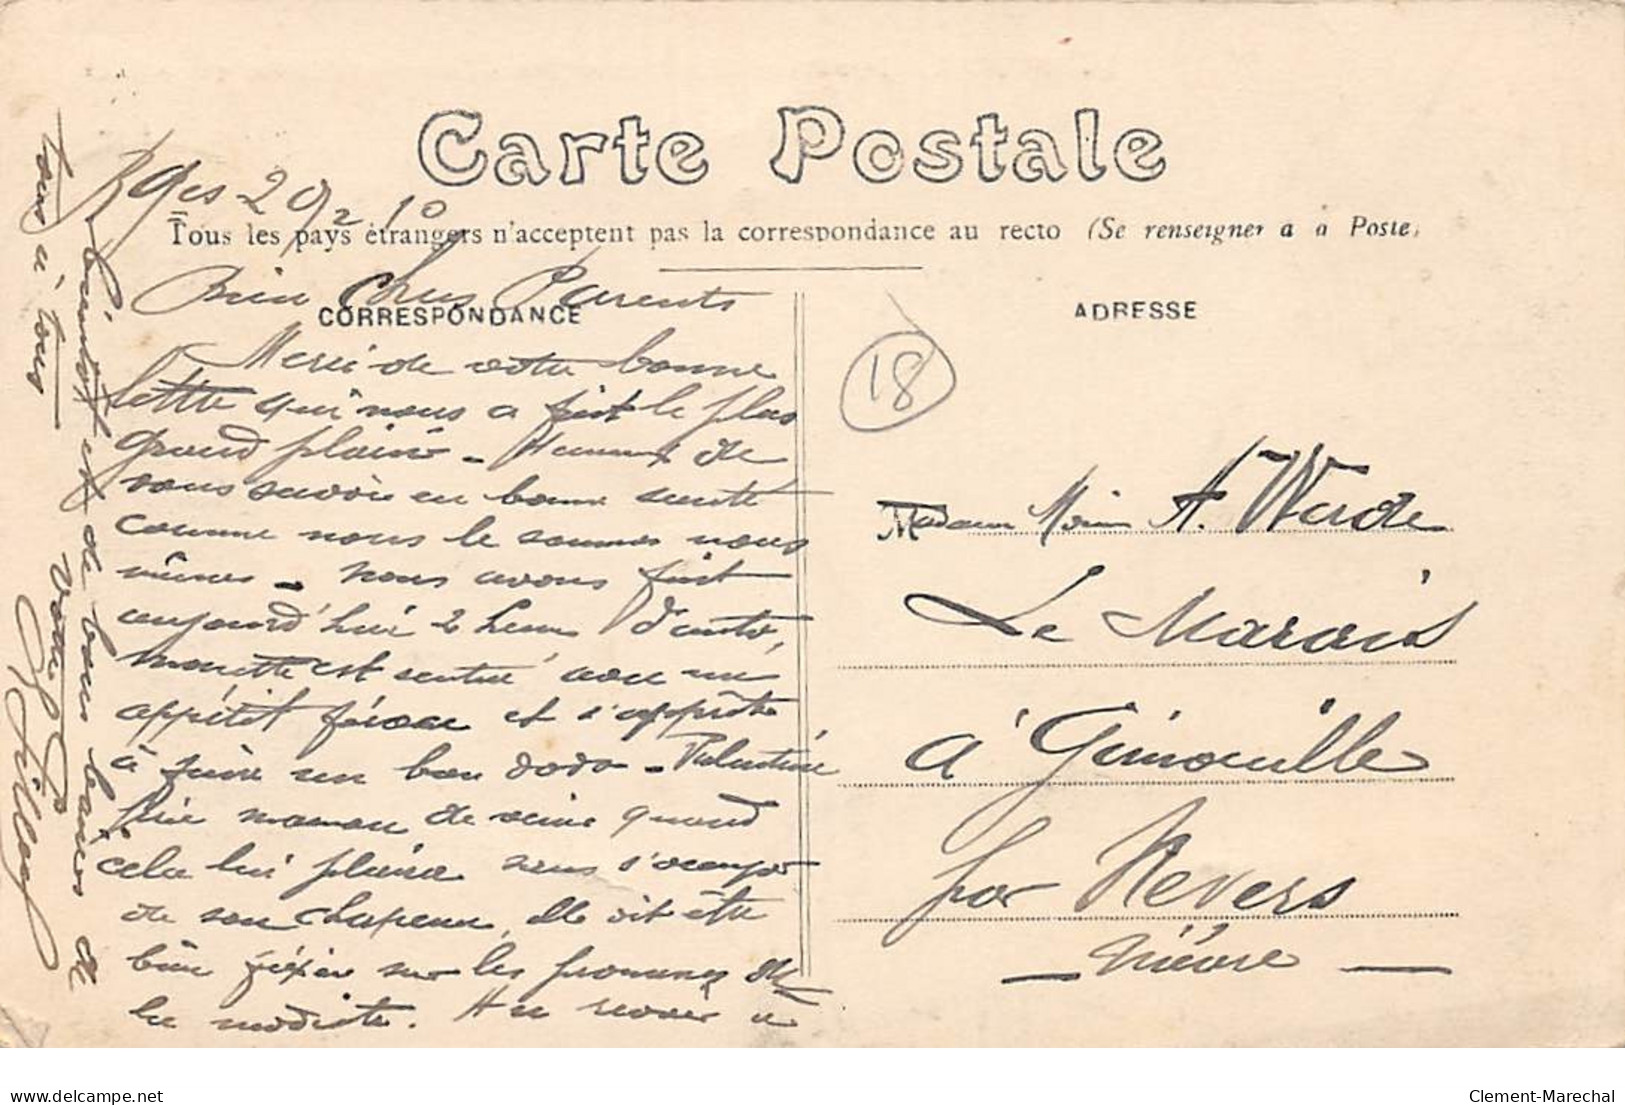 Carte Postale
Bges 20/2 10
Tous les pays étrangers n'acceptent pas la correspondance au recto (Se renseigner a a Poste)
CORRESPONDANCE
ADRESSE
18
Bien Chers Parents
Merci de votre bonne
lettre qui nous a fait le plus
grand plaisir - Heureux de
vous savoir en bonne santé
comme nous le sommes nous
mêmes - Nous avons fait
aujourd'hui 2 heures d'auto,
manette est rentré avec un
appétit féroce et s'apprête
à faire un bon dodo - Valentine
prie maman de venir quand
cela lui plaira pour s'occuper
de son chapeau, elle doit être
bien fixée sur les promesses de
la modiste. Au revoir à
bientôt et de bons baisers de
tous à tous
Votre
Madame A. Warde
Le Marais
à Gimouille
par Nevers
- Nièvre -
delcampe.net
Clement-Marechal